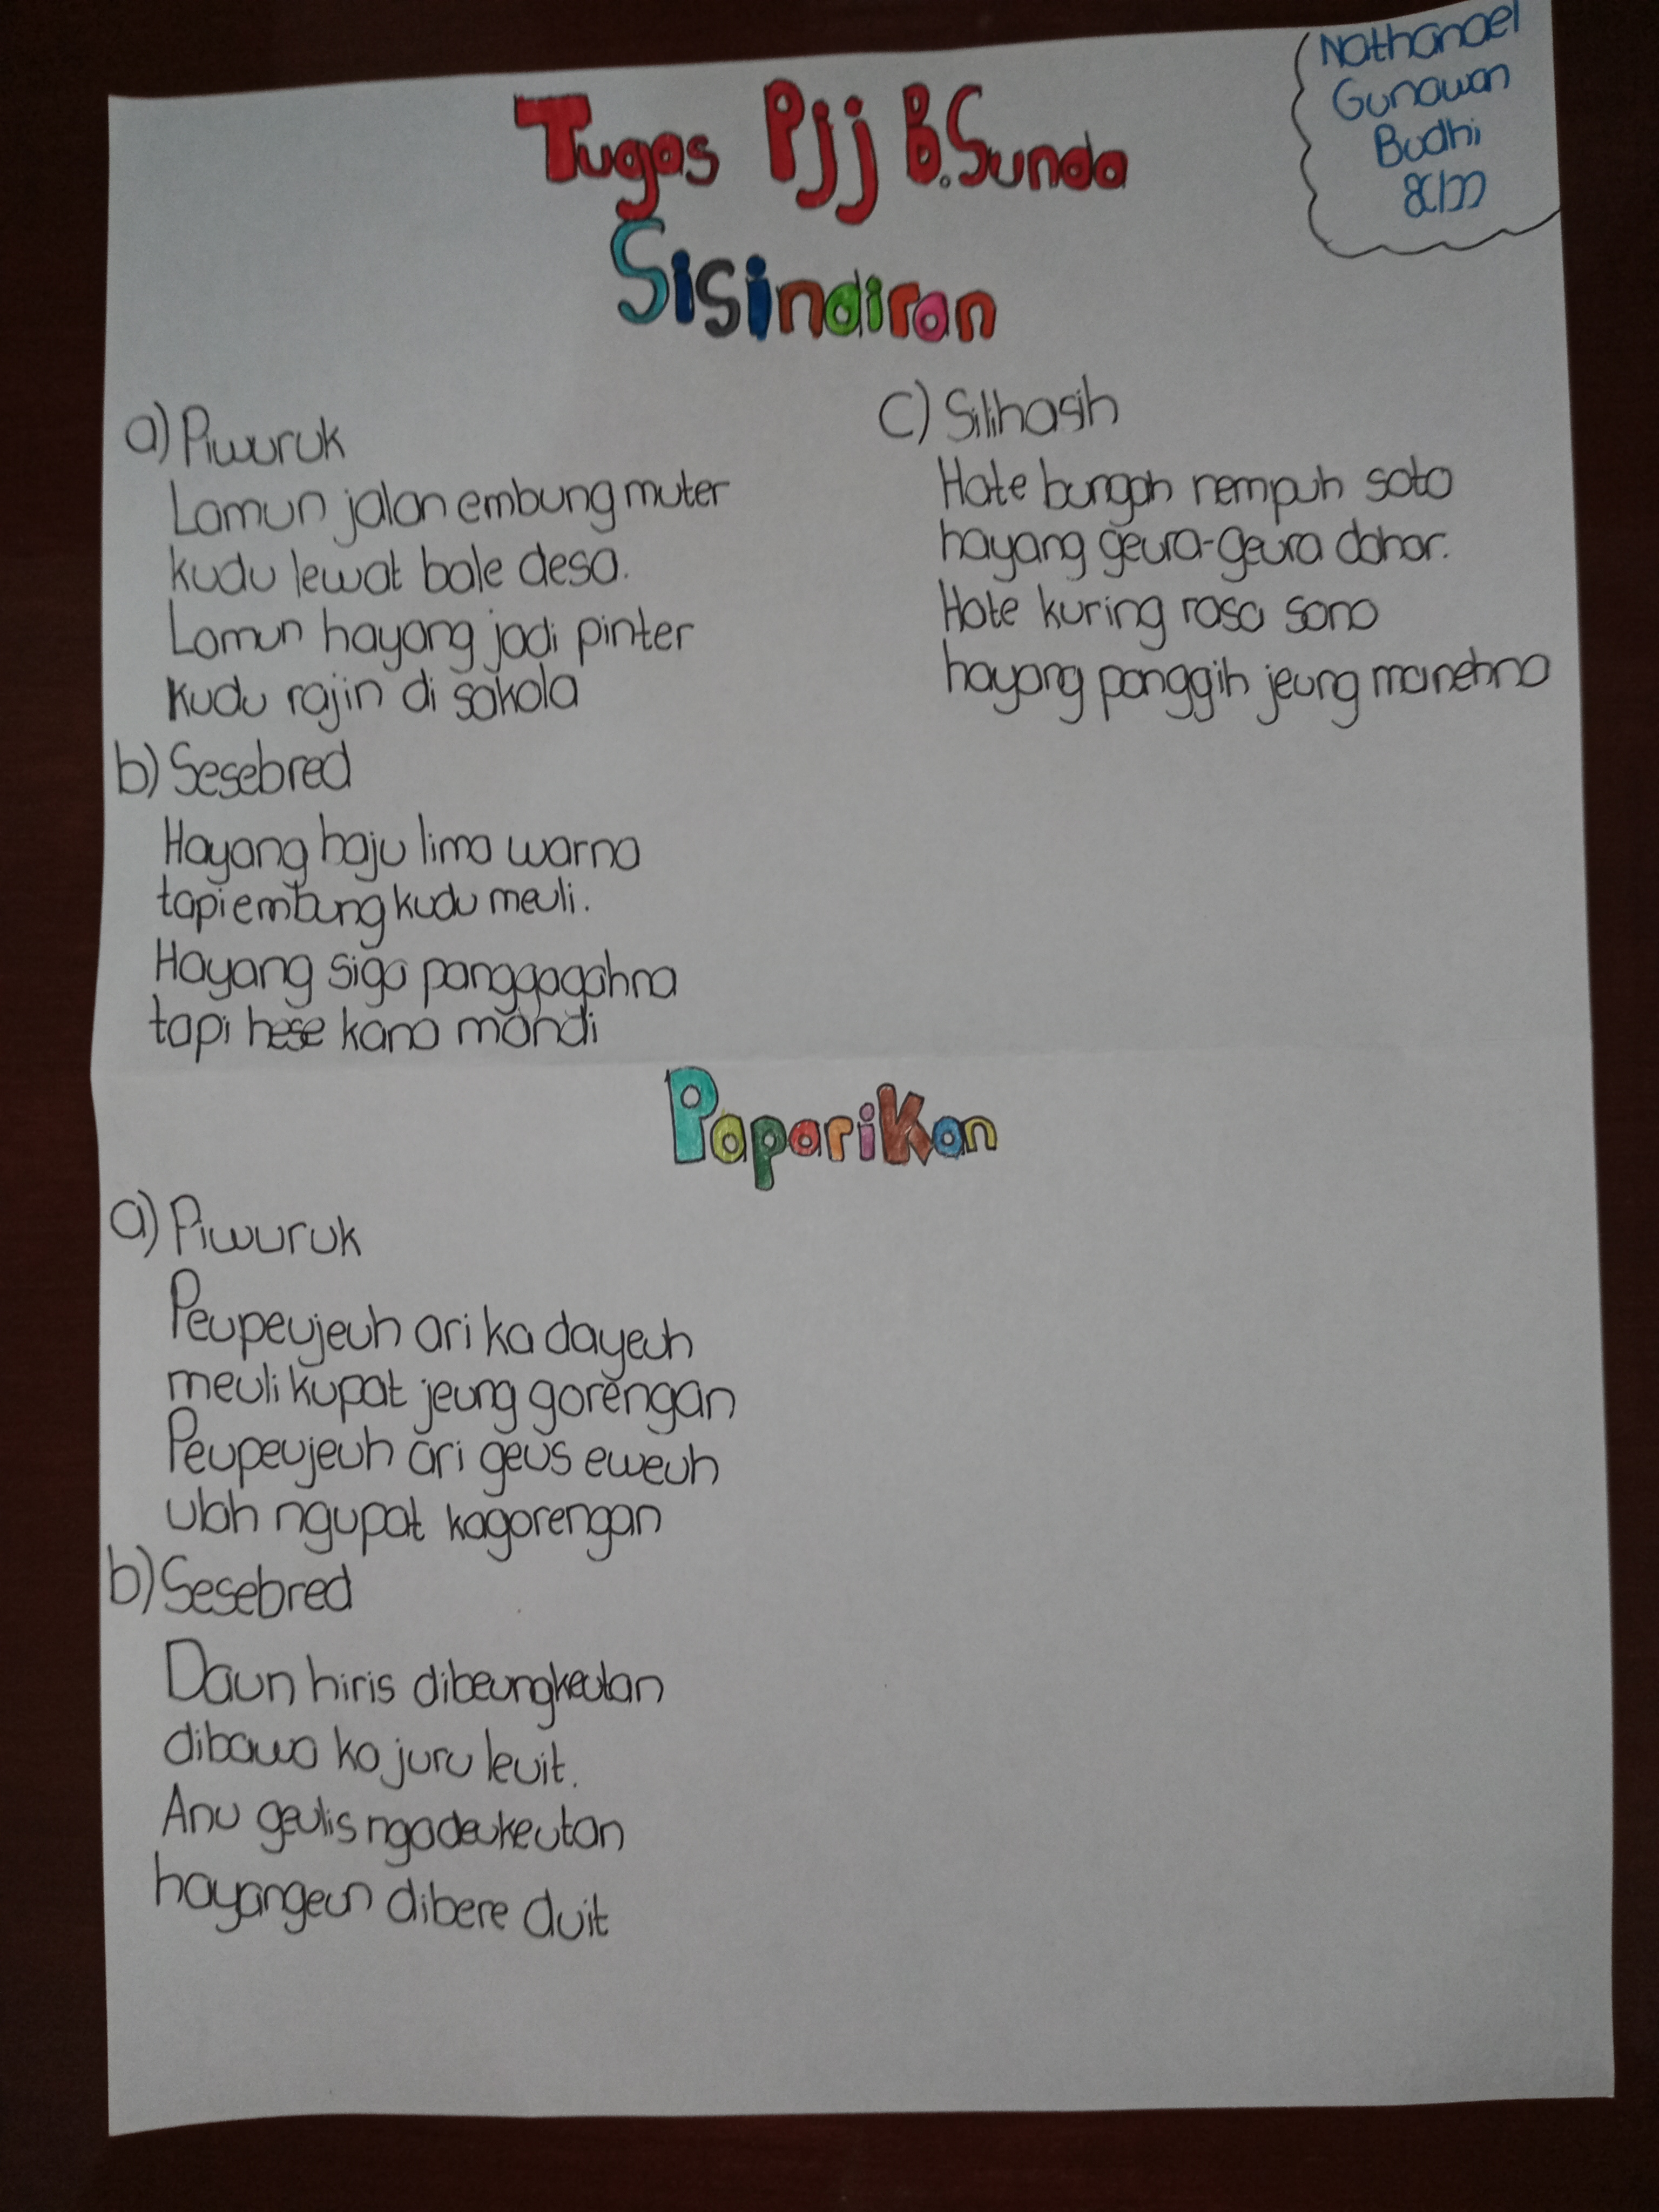 Nathanael
Gunawan
Budhi
Tugas Pjj B.Sunda
Sisindiran
a) Piwuruk
Lamun jalan embung muter
kudu lewat bale desa.
Lamun hayang jadi pinter
kudu rajin di sakola
b) Sesebred
Hayang baju lima warna
tapi embung kudu meuli.
Hayang siga panggagahna
tapi hese kana mandi
c) Silihasih
Hate bungah nempuh soto
hayang geura-geura dahar.
Hate kuring rasa sono
hayang panggih jeung manehna
Paparikan
a) Piwuruk
Peupeujeuh ari ka dayeuh
meuli kupat jeung gorengan
Peupeujeuh ari geus eweuh
ulah ngupat kagorengan
b) Sesebred
Daun hiris dibeungkeutan
dibawa ka juru leuit.
Anu geulis ngadeukeutan
hayangeun dibere duit